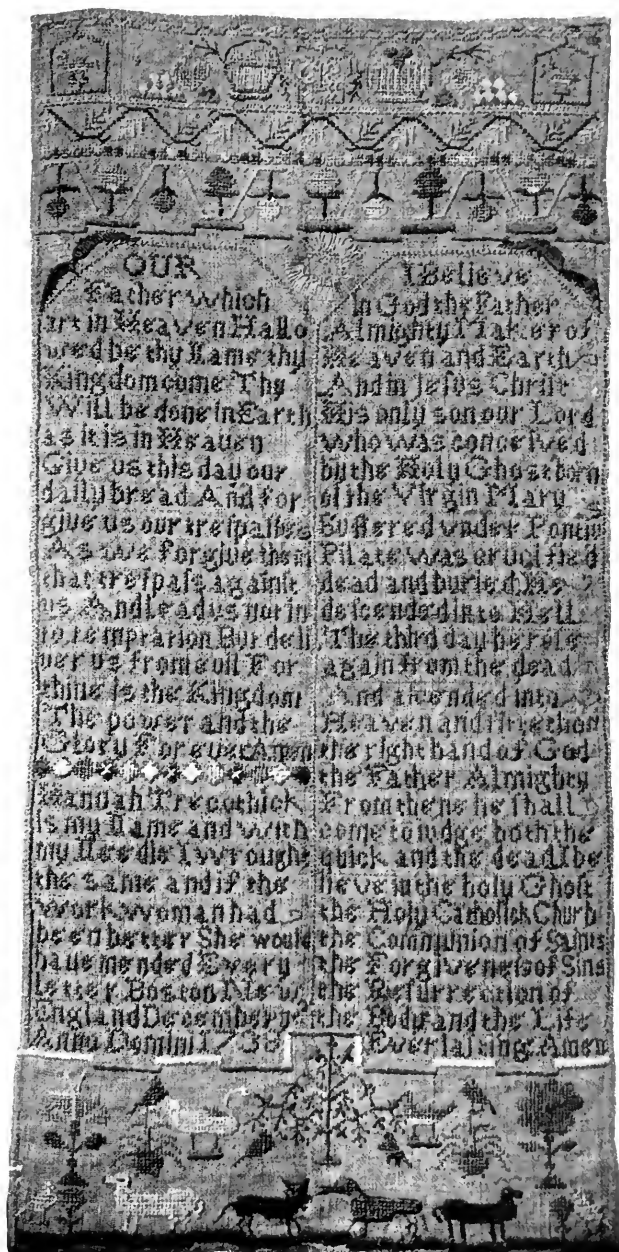 OUR
Father which
art in Heaven Hallo
wed be thy Name thy
Kingdom come Thy
Will be done in Earth
as it is in Heaven
Give us this day our
daily bread And for
give us our treſpaſſes
As we forgive them
that treſpaſs againſt
us And lead us not in
to temptation But deli
ver us from evil For
thine is the Kingdom
The power and the
Glory For ever Amen
Hannah Trecothick
is my Name and with
my Needle I wrought
the same and if the
work woman had
been better She would
have mended Every
letter Boston New
England December ye
Anno Domini 1738
I Believe
In God the Father
Almighty Maker of
Heaven and Earth
And in Jeſus Chriſt
His only son our Lord
who was conceived
by the Holy Ghost born
of the Virgin Mary
Suffered vnder Pontius
Pilate was crucified
dead and buried He
deſcended into Hell
The third day he roſe
again from the dead
And aſcended into
Heaven and ſitteth on
the right hand of God
the Father Almighty
From thene he ſhall
come to iudge both the
quick and the dead I be
lieve in the holy Ghoſt
the Holy Catholick Churh
the Communion of Saints
the Forgiveneſs of Sins
the Reſurrection of
the Body and the Life
Everlaſting Amen